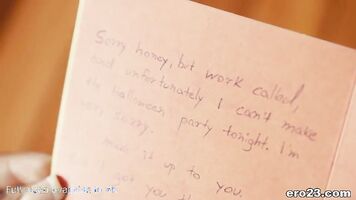 Sorry honey, but work called,
and unfortunately I can't make
the halloween party tonight. I'm
very sorry.
make it up to you.
I got you th
Full video available in
ero23.com